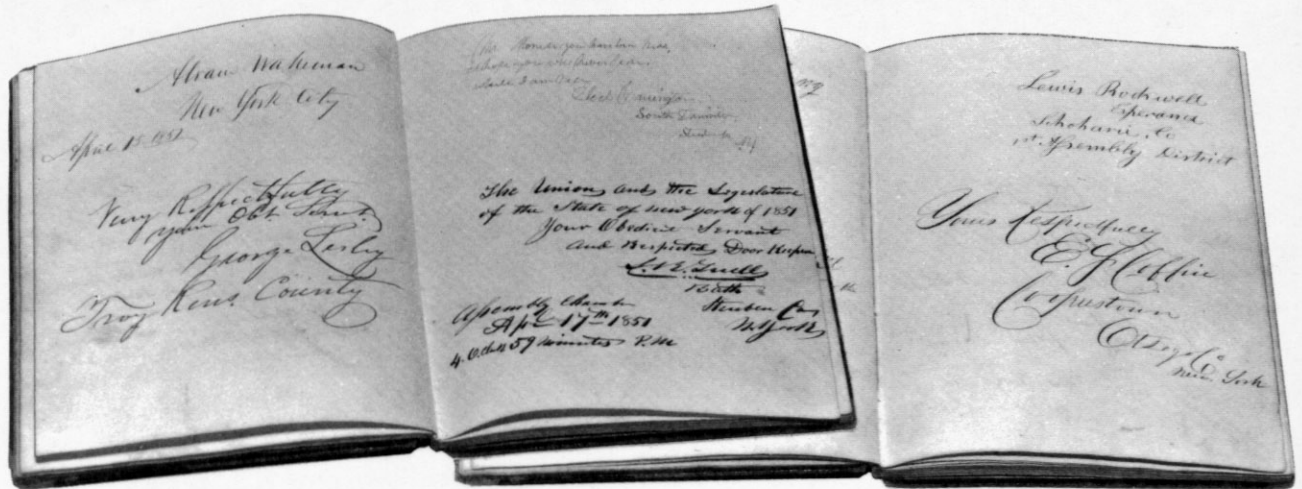 Alvan Wakeman
New York City
April 15 1851
Very Respectfully
your Obt Servt.
George Lesley
Troy Rens County
South
The Union and the Legislature
of the State of new york of 1851
Your Obedient Servant
and Respected Door Keeper
Bath
Steuben Co
N. York
Assembly Chamber
Apr 17th 1851
4. O.clock 59 minutes P.M
Lewis Rockwell
Esperance
Schoharie Co
1st Assembly District
Yours Respectfully
E. G. Coffin
Otsego Co
New York